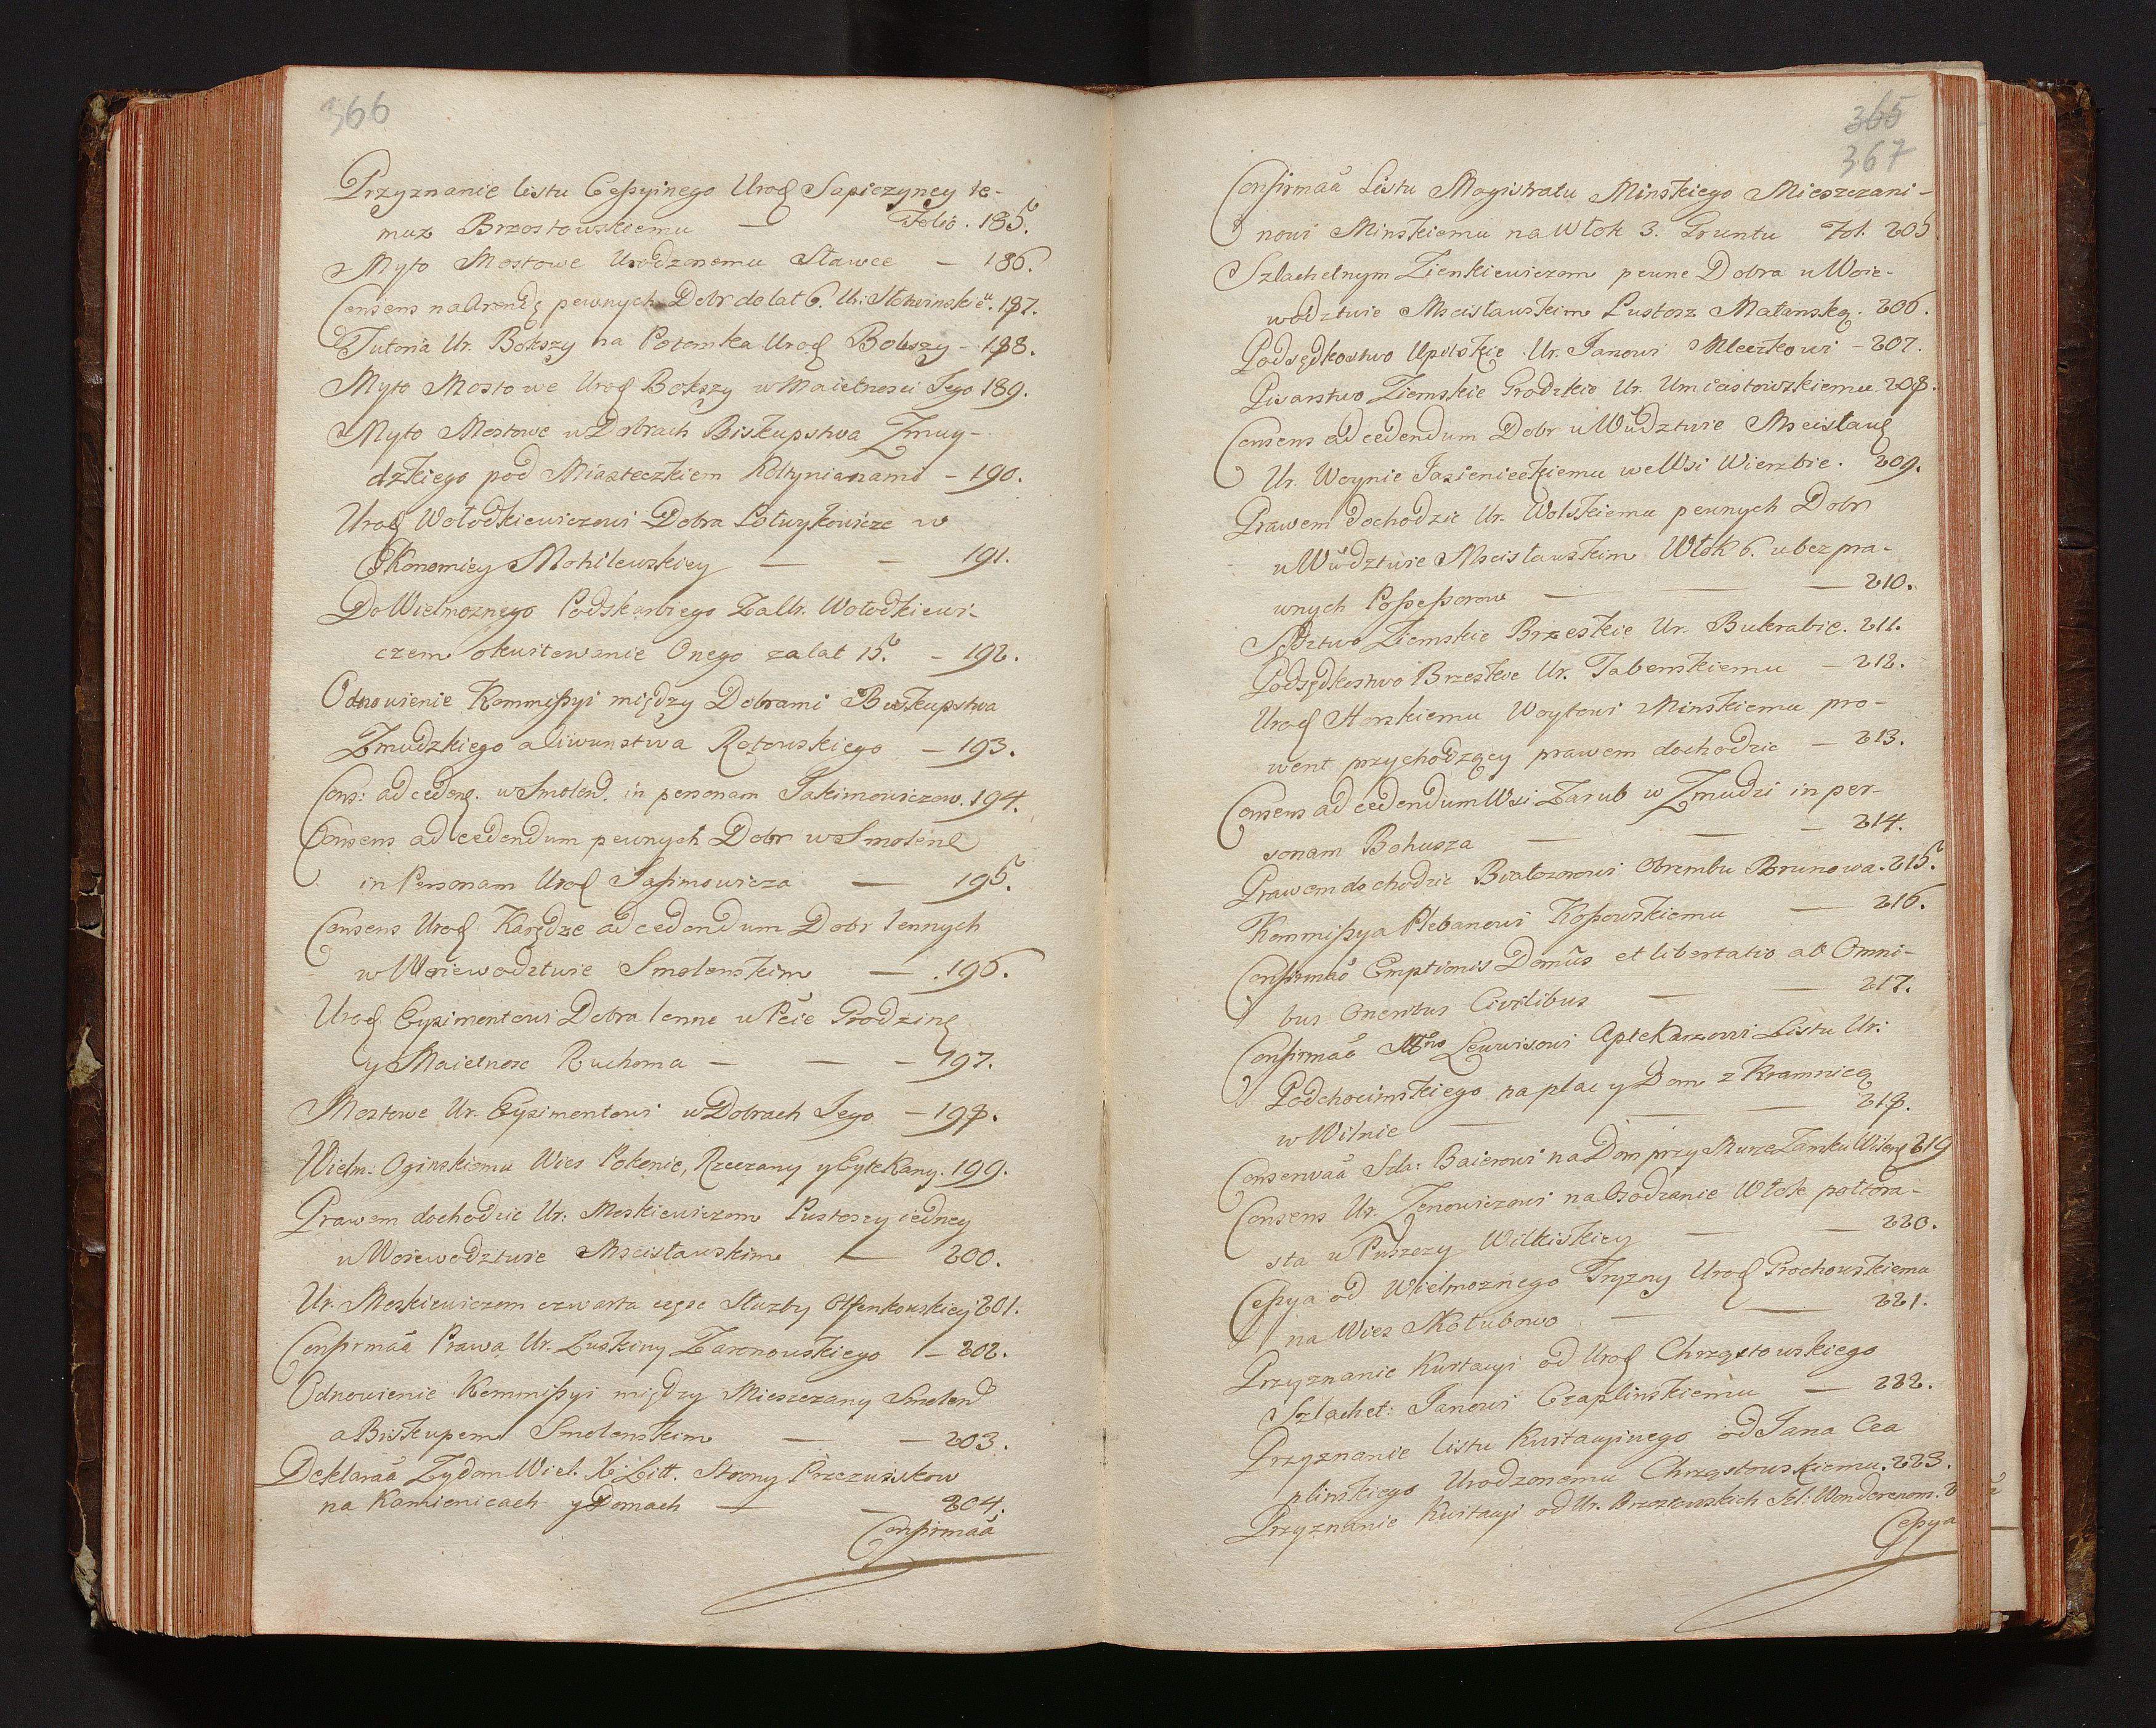 366
Przyznanie listu Cessyinego Urod Sapiezyney te-
muz Brzostowskiemu — Folio. 185.
Myto Mostowe Urodzonemu Sławce — 186.
Consens na Arendę pewnych Dobr do lat 6. Ur: 187.
Tutoria Ur. Bokszy na Potomka Urod Bokszy - 188.
Myto Mostowe Urod Bokszy w Maietnosci Jego 189.
Myto Mostowe w Dobrach Biskupstwa Zmuy-
dzkiego pod Miasteczkiem Kołtynianami - 190.
Urod Wołodkiewiczowi Dobra Połwykowicze w
Ekonomiey Mohilewskiey — - 191.
Do Wielmoznego Podskarbiego Za Ur. Wołodkiewi-
czem okwitowanie Onego za lat 15. - 192.
Odnowienie Kommissyi między Dobrami Biskupstwa
Zmudzkiego a Ciwunstwa Retowskiego - 193.
Cons: ad cedend. w Smolen. in personam Jakimowiczow. 194.
Consens ad cedendum pewnych Dobr w Smolen
in Personam Urod Jasimowicza — 195.
Consens Urod Karędze ad cedendum Dobr lennych
w Woiewodztwie Smolenskim — 196.
Urod Eysimontowi Dobra lenne w Pcie Grodzin
y Maietnosc Ruchoma — — - 197.
Mostowe Ur. Eysimontowi w Dobrach Jego - 198.
Wielm: Oginskiemu Wies Pokenie, Rzeczany y Eytkany. 199.
Prawem dochodzic Ur: Moskiewiczom Pustoszy iedney
w Woiewodztwie Mscisławskim — 200.
Ur. Moskiewiczom czwarta częsc Słuzby 201.
Confirmaã Prawa Ur. Łuskiny Zaronowskiego - 202.
Odnowienie Kommissyi między Mieszczany Smolen
a Biskupem Smolenskim — - 203.
Deklaraã Zydom Wiel. X. Litt. Strony Przezuskow
na Kamienicach y Domach — - 204.
Confirmaã
365
367
Confirmaã Listu Magistratu Minskiego Mieszczani-
nowi Minskiemu na Włok 3. Gruntu Fol. 205
Szlachetnym Zienkiewiczom pewne Dobra w Woie-
wodztwie Mscisławskim Pustosz Małanską. 206.
Podsędkostwo Upitskie Ur. Janowi Mleczkowi - 207.
Pisarstwo Ziemskie Grodzkie Ur. Umiastowskiemu. 208.
Consens ad cedendum Dobr w Wudztwie Mscisław
Ur. Woynie Jasienieckiemu we Wsi Wierzbie. 209.
Prawem dochodzic Ur. Wolskiemu pewnych Dobr
w Wudztwie Mscisławskim Włok 6. u bezpra-
wnych Possessorow — — 210.
Sędztwo Ziemskie Brzeskie Ur. Bukrabie. 211.
Podsędkostwo Brzeskie Ur. Tabenskiemu - 212.
Urod Horskiemu Woytowi Minskiemu pro-
went przychodzący prawem dochodzic - 213.
Consens ad cedendum Wsi Zarub w Zmudzi in per-
sonam Bohusza — — - 214.
Prawem dochodzic Białozorowi Obrembu Brunowa. 215.
Kommissya Plebanowi Kossowskiemu — 216.
Confirmaõ Emptionis Domûs et libertatio ab Omni-
bus Oneribus Civilibus — — 217.
Confirmaõ Leuwisowi Aptekarzowi Listu Ur:
Podchocimskiego na plac y Dom z Kramnicą
w Wilnie — — — 218.
Conservaã Szla: Baierowi na Dom przy Murze Zamku Wilen 219
Consens Ur. Zenowiczowi na Osodzanie Włok połtora-
sta w Puszczy Wilkiskiey — — 220.
Cessya od Wielmoznego Tryzny Urod Grochowskiemu
na Wies Kołubowo — — 221.
Przyznanie Kwitacyi od Urod Chrząstowskiego
Szlachet: Janowi Czaplinskiemu — 222.
Przyznanie listu Kwitacyinego od Jana Cza
plinskiego Urodzonemu Chrząstowskiemu. 223.
Przyznanie Kwitacyi od Ur. Brzostowskich Szl: Wonderenom.
Cessya